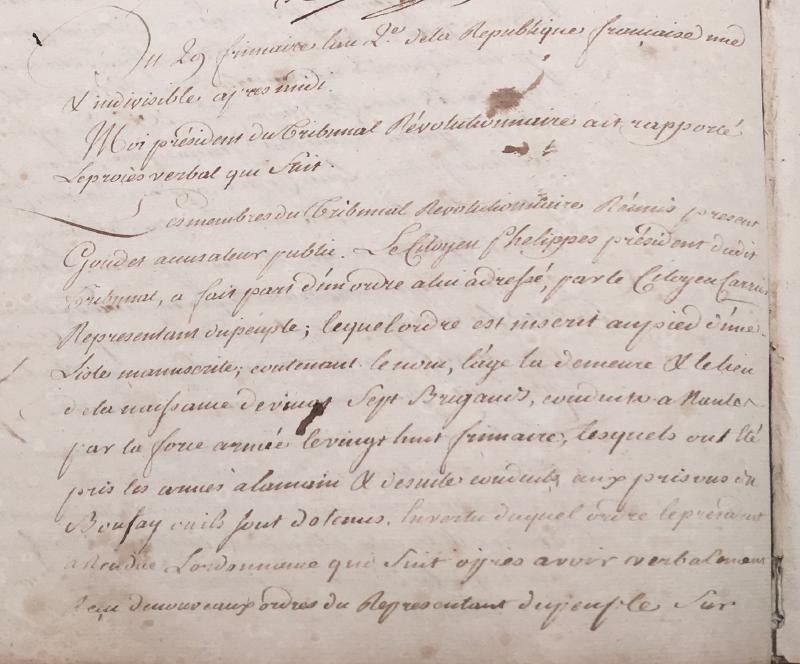 Du 29 frimaire lan 2.e de la Republique francaise une
& indivisible apres midi.
Moi président du Tribunal Révolutionnaire ait rapporté
le procès verbal qui Suit.
Les membres du Tribunal Revolutionnaire Réunis present
Goudet accusateur public. Le Citoyen Phelippes président dudit
Tribunal, a fait part d'un ordre a lui adressé, par le Citoyen Carrier
Representant du peuple; lequel ordre est inscrit au pied d'une
Liste manuscrite; contenant le nom, l'age la demeure & le lieu
de la naissance de vingt Sept Brigands, conduits a Nantes
par la force armée le vingt huit frimaire, lesquels ont Eté
pris les armes a la main & de suite conduits aux prisons du
Boufay ou ils sont detenus. En vertu duquel ordre le président
a Rendue L'ordonnance qui Suit apres avoir verbalement
Reçu de nouveaux ordres du Representant du peuple Sur